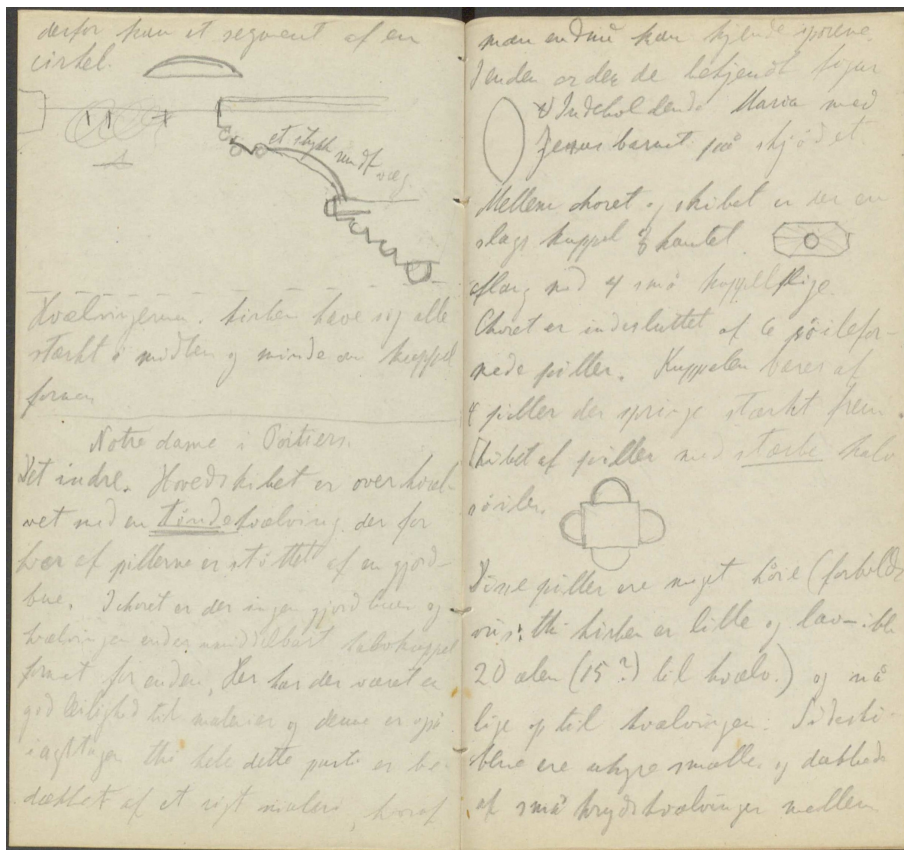 derfor kun et segment af en
cirkel.
et stykke rundt væg
Hvælvingerne i kirken hæve sig alle
stærkt i midten og minde om kuppel
formen
Notre dame i Poitiers.
Det indre. Hovedskibet er overhvæl-
vet med en tøndehvælving, der for
hver af pillerne er støttet af en gjord-
bue. I choret er der ingen gjordbuer og
hvælvingen ender umiddelbart halvkuppel
formet for enden, Her har der været en
god leilighed til malerier og denne er også
iagttagen thi hele dette parti er be-
dækket af et rigt maleri, hvoraf
man endnu kan kjende sporene.
I enden er der de bekjendte figur
indeholdende Maria med
Jesus barnet på skjødet.
Mellem choret og skibet er der en
slags kuppel 8 kantet
med 4 små kuppelflige.
Choret er indesluttet af 6 søilefor-
mede piller. Kuppelen bæres af
4 piller der springe stærkt frem
Skibet af piller med stærke halv
søiler.
Disse piller ere meget høie (forholds
vis: thi kirken er lille og lav – ikke
20 alen (15?) til hvælv.) og nå
lige op til hvælvingen. Sideski-
bene ere uhyre smalle og dækkede
af små krydshvælvinger mellem